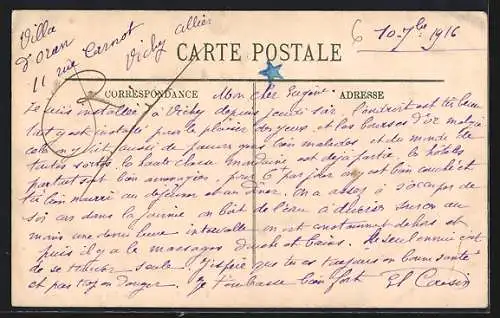 Villa
d'oran
11 rue Carnot
Vichy allier
6 10-7bre 1916
CARTE POSTALE
CORRESPONDANCE
ADRESSE
Mon cher Eugène
Je suis installée à Vichy depuis jeudi soir l'endroit est très beau
tout y est installé pour le plaisir des yeux et les bourses d'or malgré
cela on y voit aussi de pauvres gens bien malades et du monde de
toutes sortes la haute classe mondaine est déjà partie les hôtels
partout sont bien aménagés pour 6 par jour on est bien couché et
très bien nourri au déjeuner et au dîner. On a assez à s'occuper de
soi dans la journée on boit de l'eau à diverses sources au
moins une demi heure intervalle on est constamment dehors et
puis il y a le massage douche et bains. Le seul ennui est
de se trouver seule. J'espère que tu es toujours en bonne santé
et pas trop en danger. Je t'embrasse bien fort